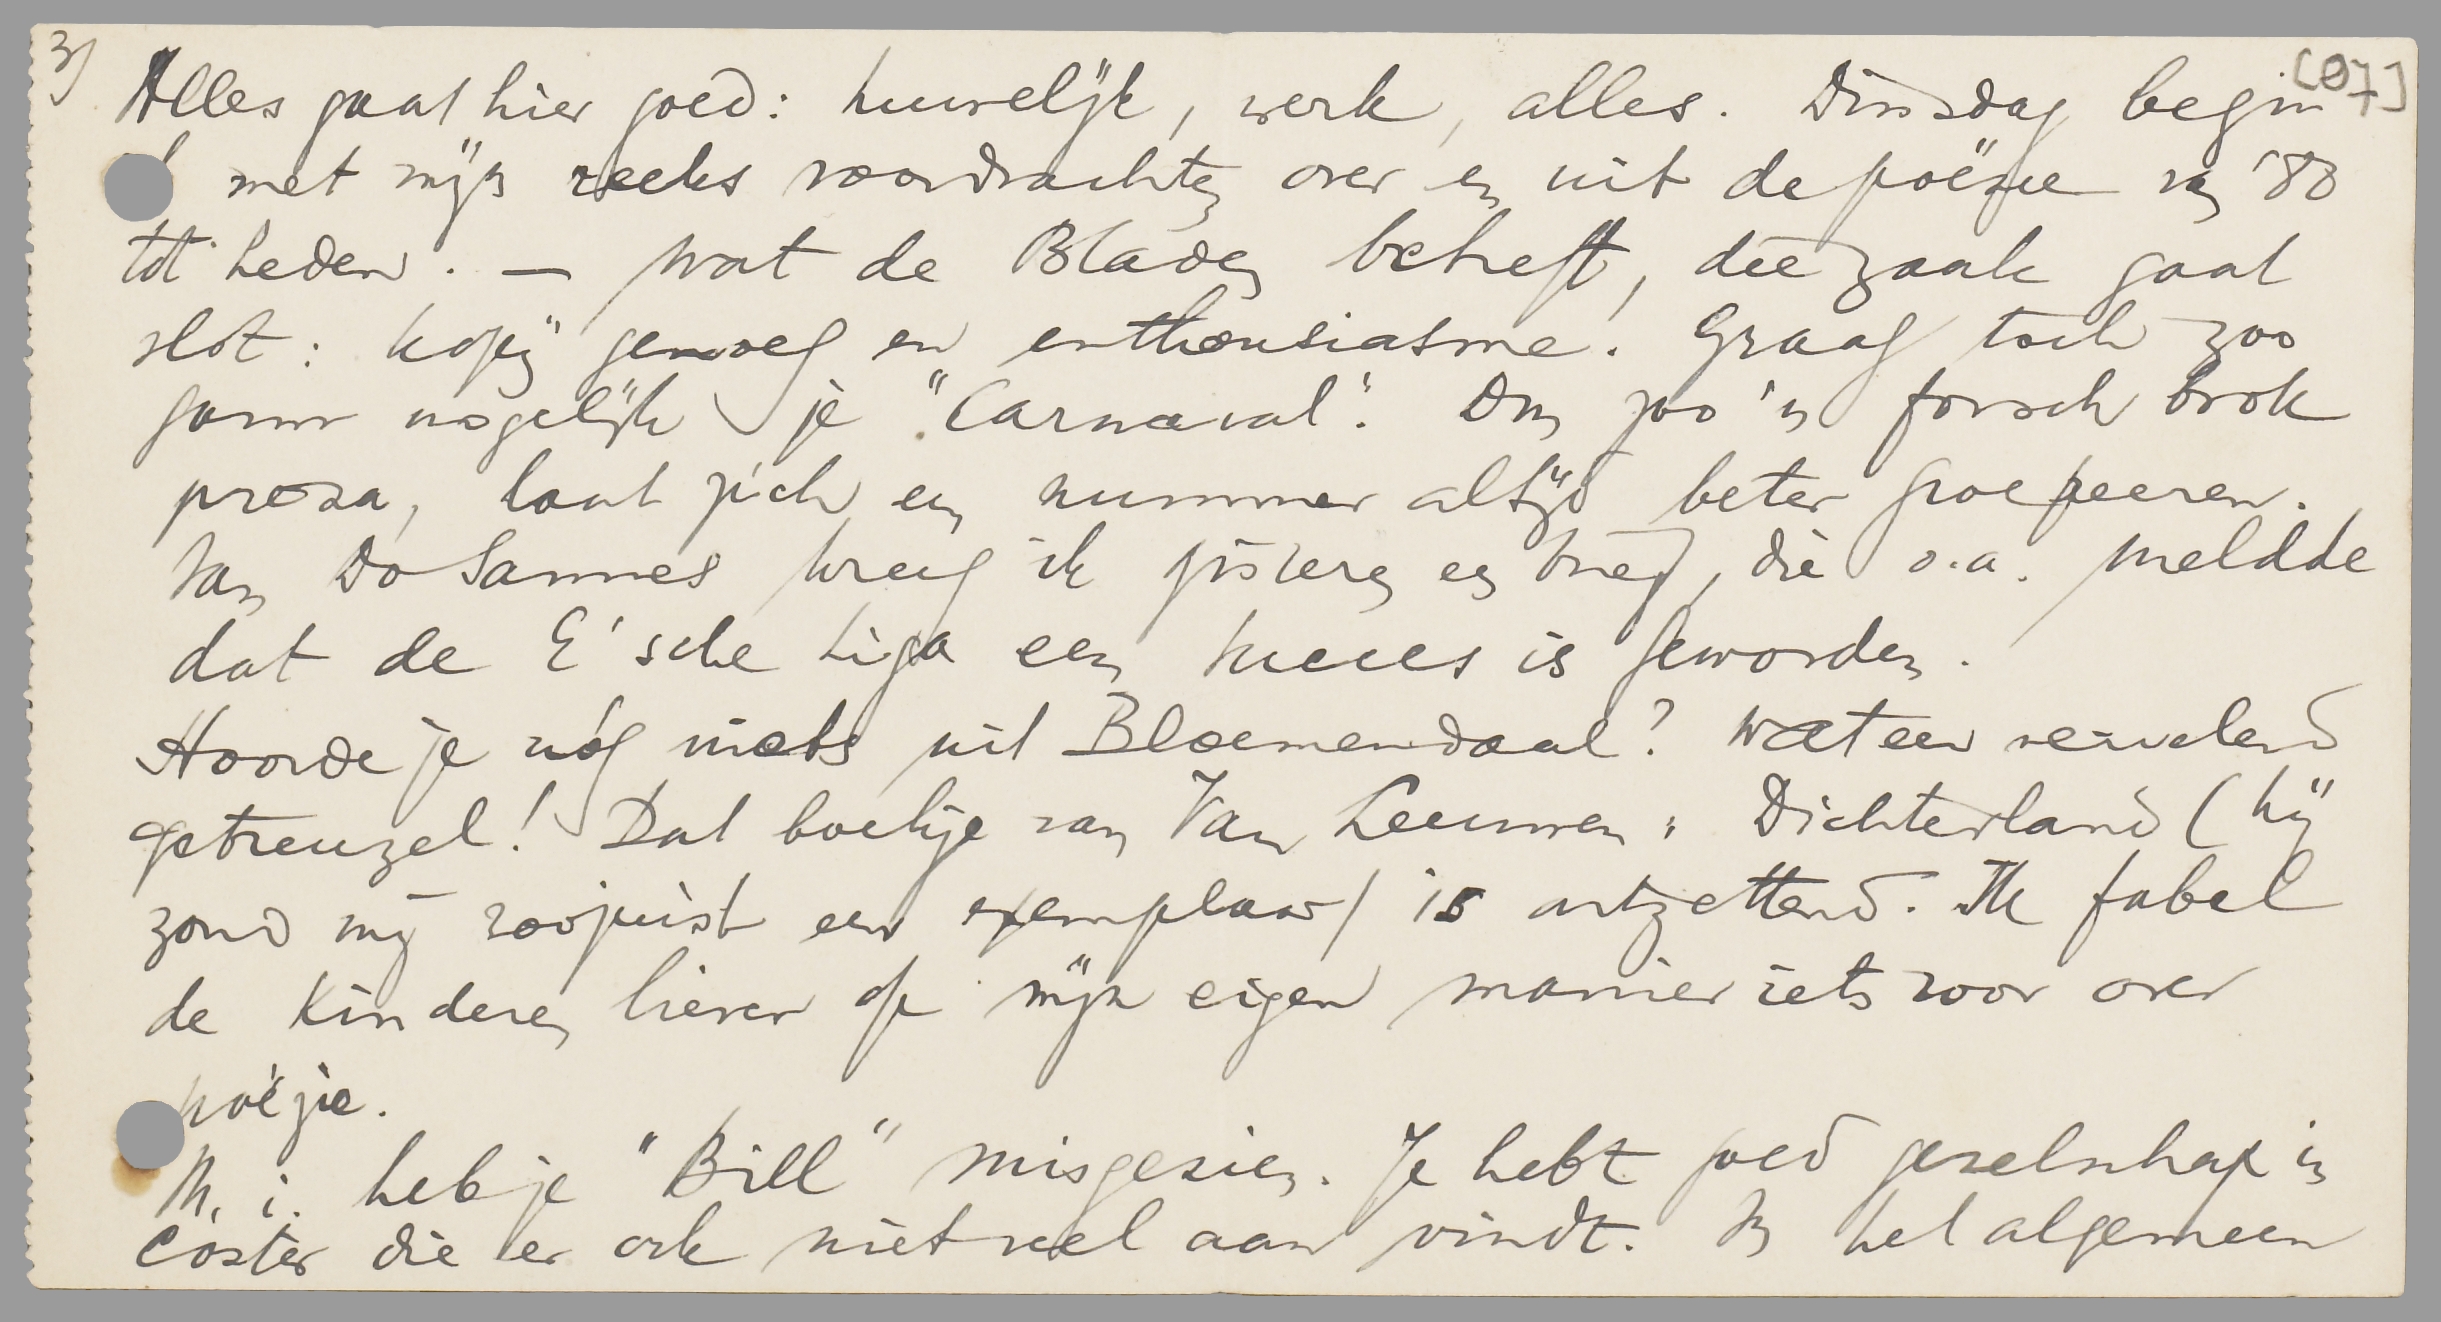 3)
[07]
Alles gaat hier goed: huwelijk, werk, alles. Dinsdag begin
met mijn reeks voordrachten over en uit de poëzie van '80
tot heden. — Wat de Bladen betreft, die zaak gaat
vlot: kopij genoeg en enthousiasme. Graag toch zoo
gauw mogelijk je "Carnaval". Om zoo'n forsch brok
proza, laat zich een nummer altijd beter groepeeren.
Van Do Sannes kreeg ik gisteren een brief, die o.a. meldde
dat de E'sche Liga een succes is geworden.
Hoorde je nóg niets uit Bloemendaal? Wat een vervelend
getreuzel! Dat boekje van Van Leeuwen: Dichterland (hij
zond mij zoojuist een exemplaar) is ontzettend. Ik fabel
de kinderen liever op mijn eigen manier iets voor over
poëzie.
M.i. heb je "Bill" misgezien. Je hebt goed gezelschap in
Coster die er ook niet veel aan vindt. In het algemeen